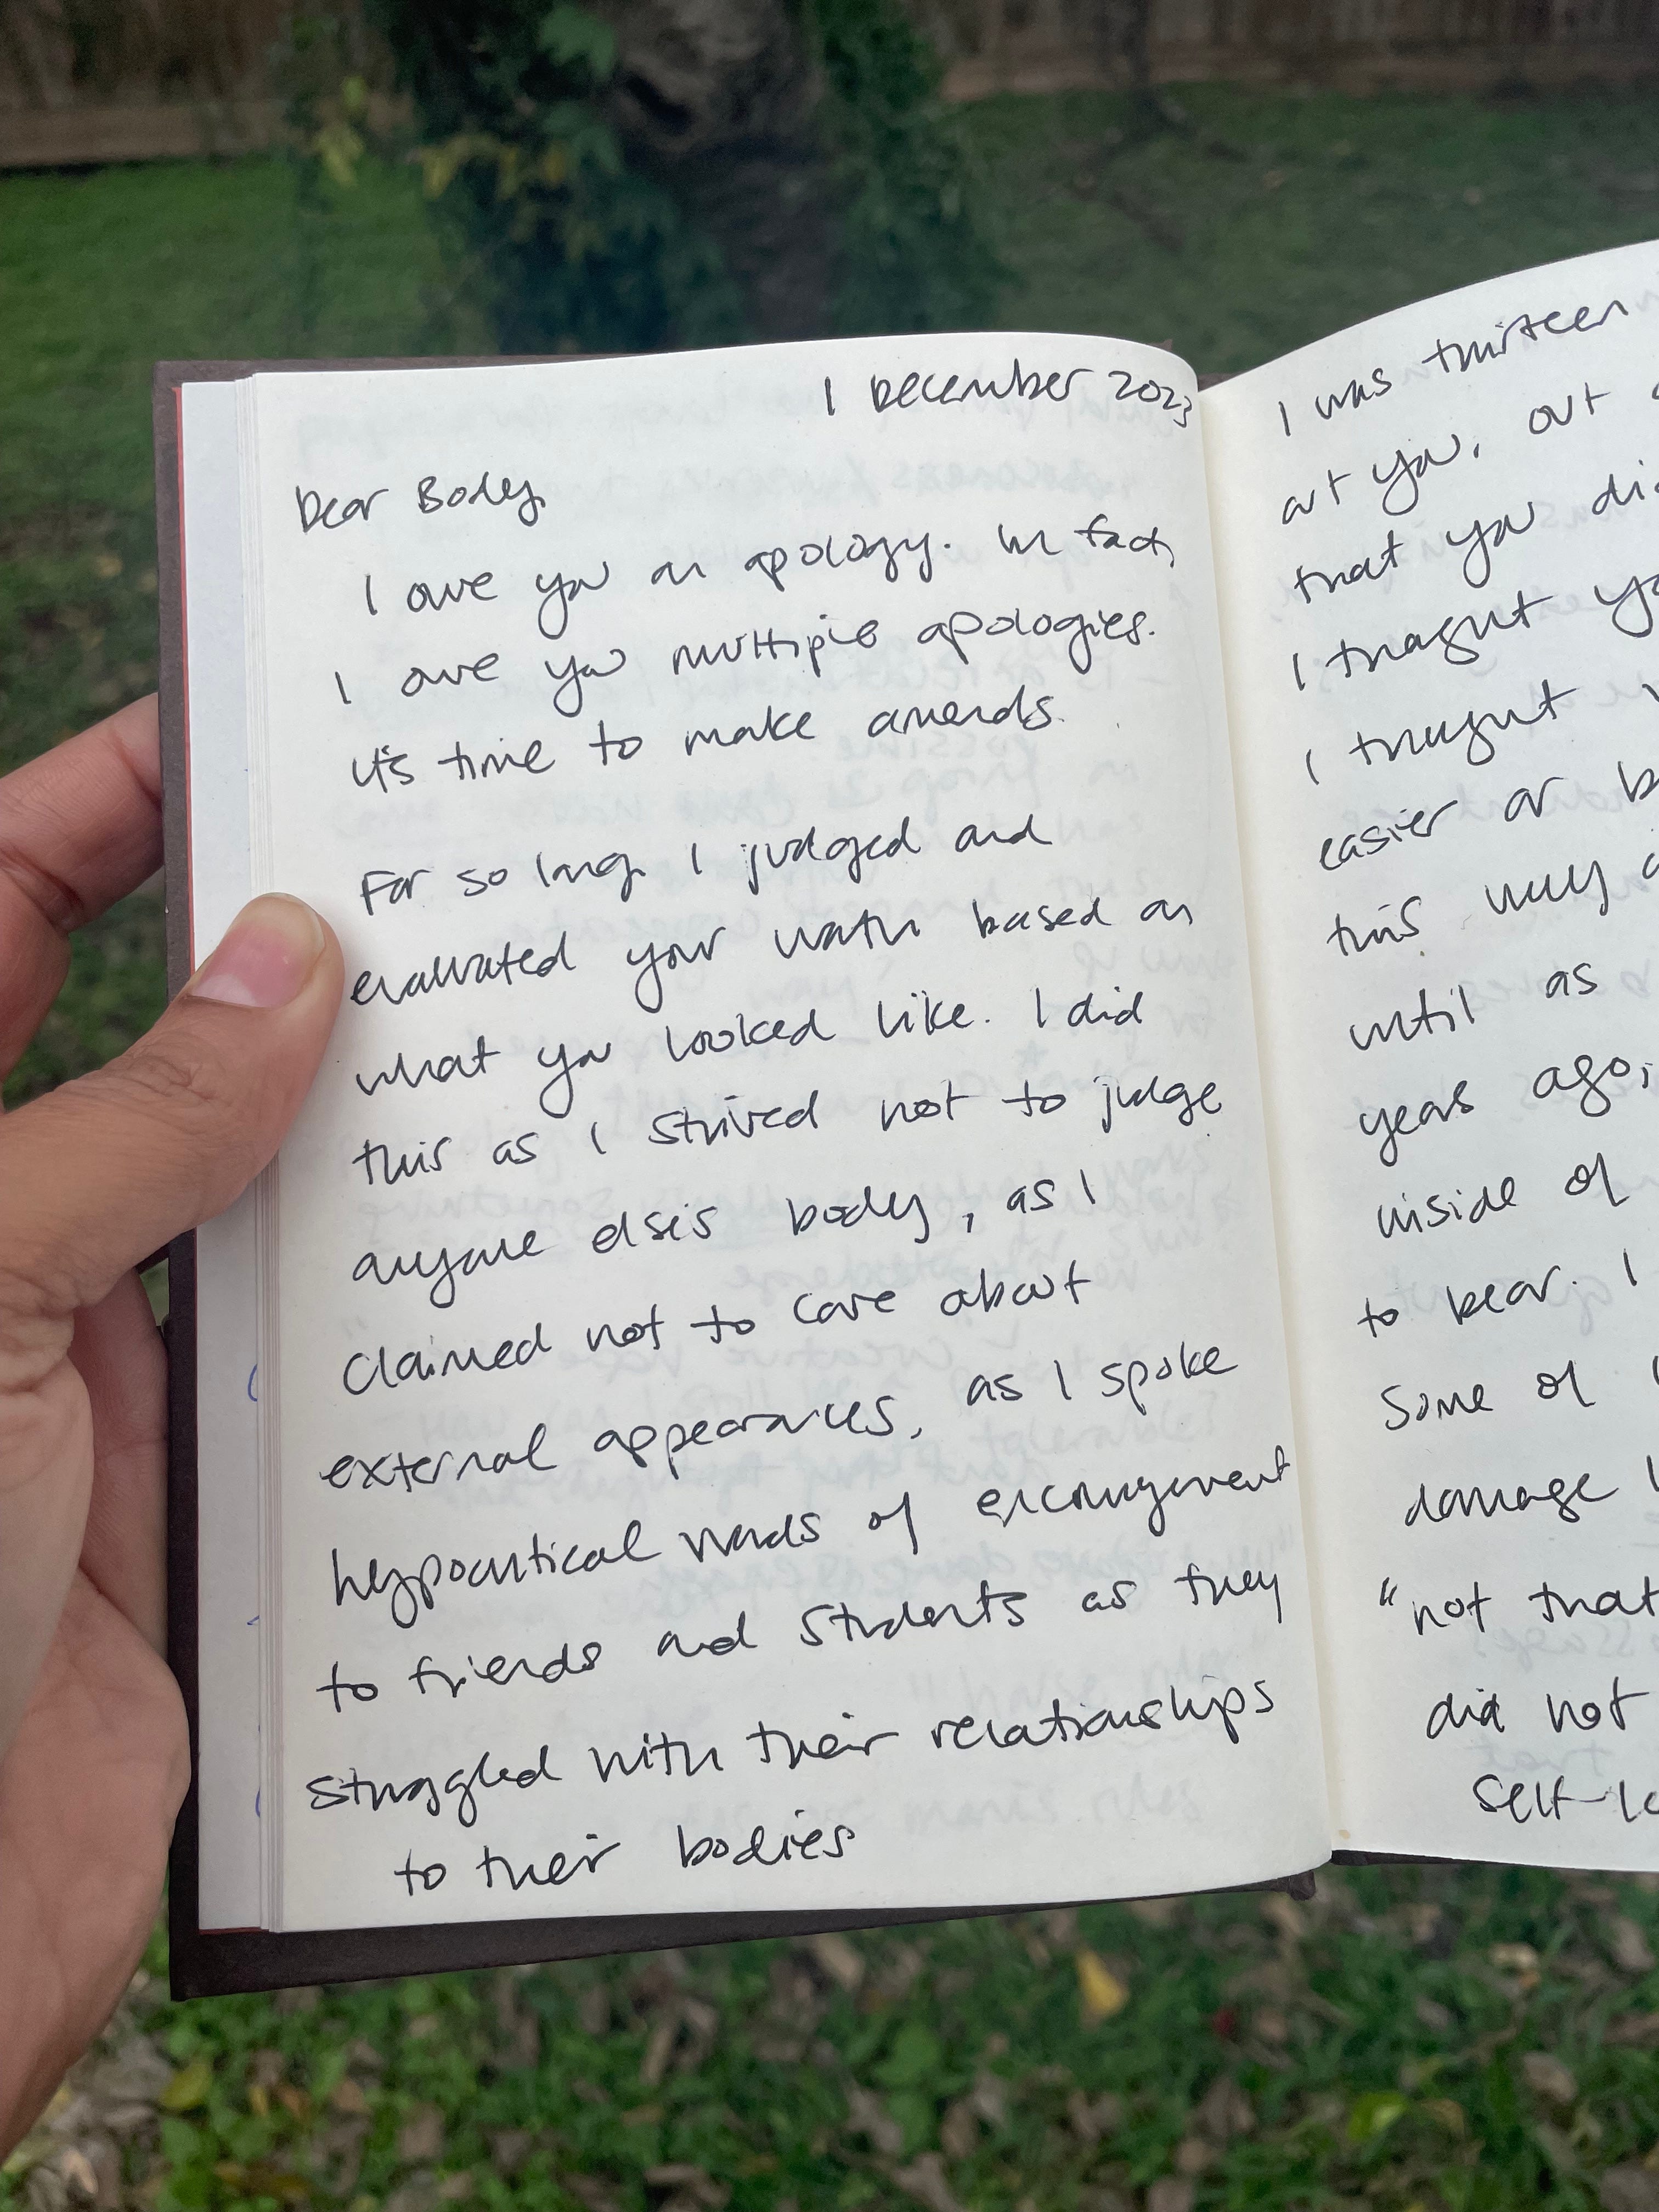 1 December 2023
Dear Body,
I owe you an apology. In fact,
I owe you multiple apologies.
It's time to make amends.
For so long, I judged and
evaluated your worth based on
what you looked like. I did
this as I strived not to judge
anyone else's body, as I
claimed not to care about
external appearances, as I spoke
hypocritical words of encouragement
to friends and students as they
struggled with their relationships
to their bodies
I was thirteen
at you, out
that you
I thought
I thought
easier or
this very
until as
years ago;
inside of
to bear. I
Some of
damage
"not that
did not
self-